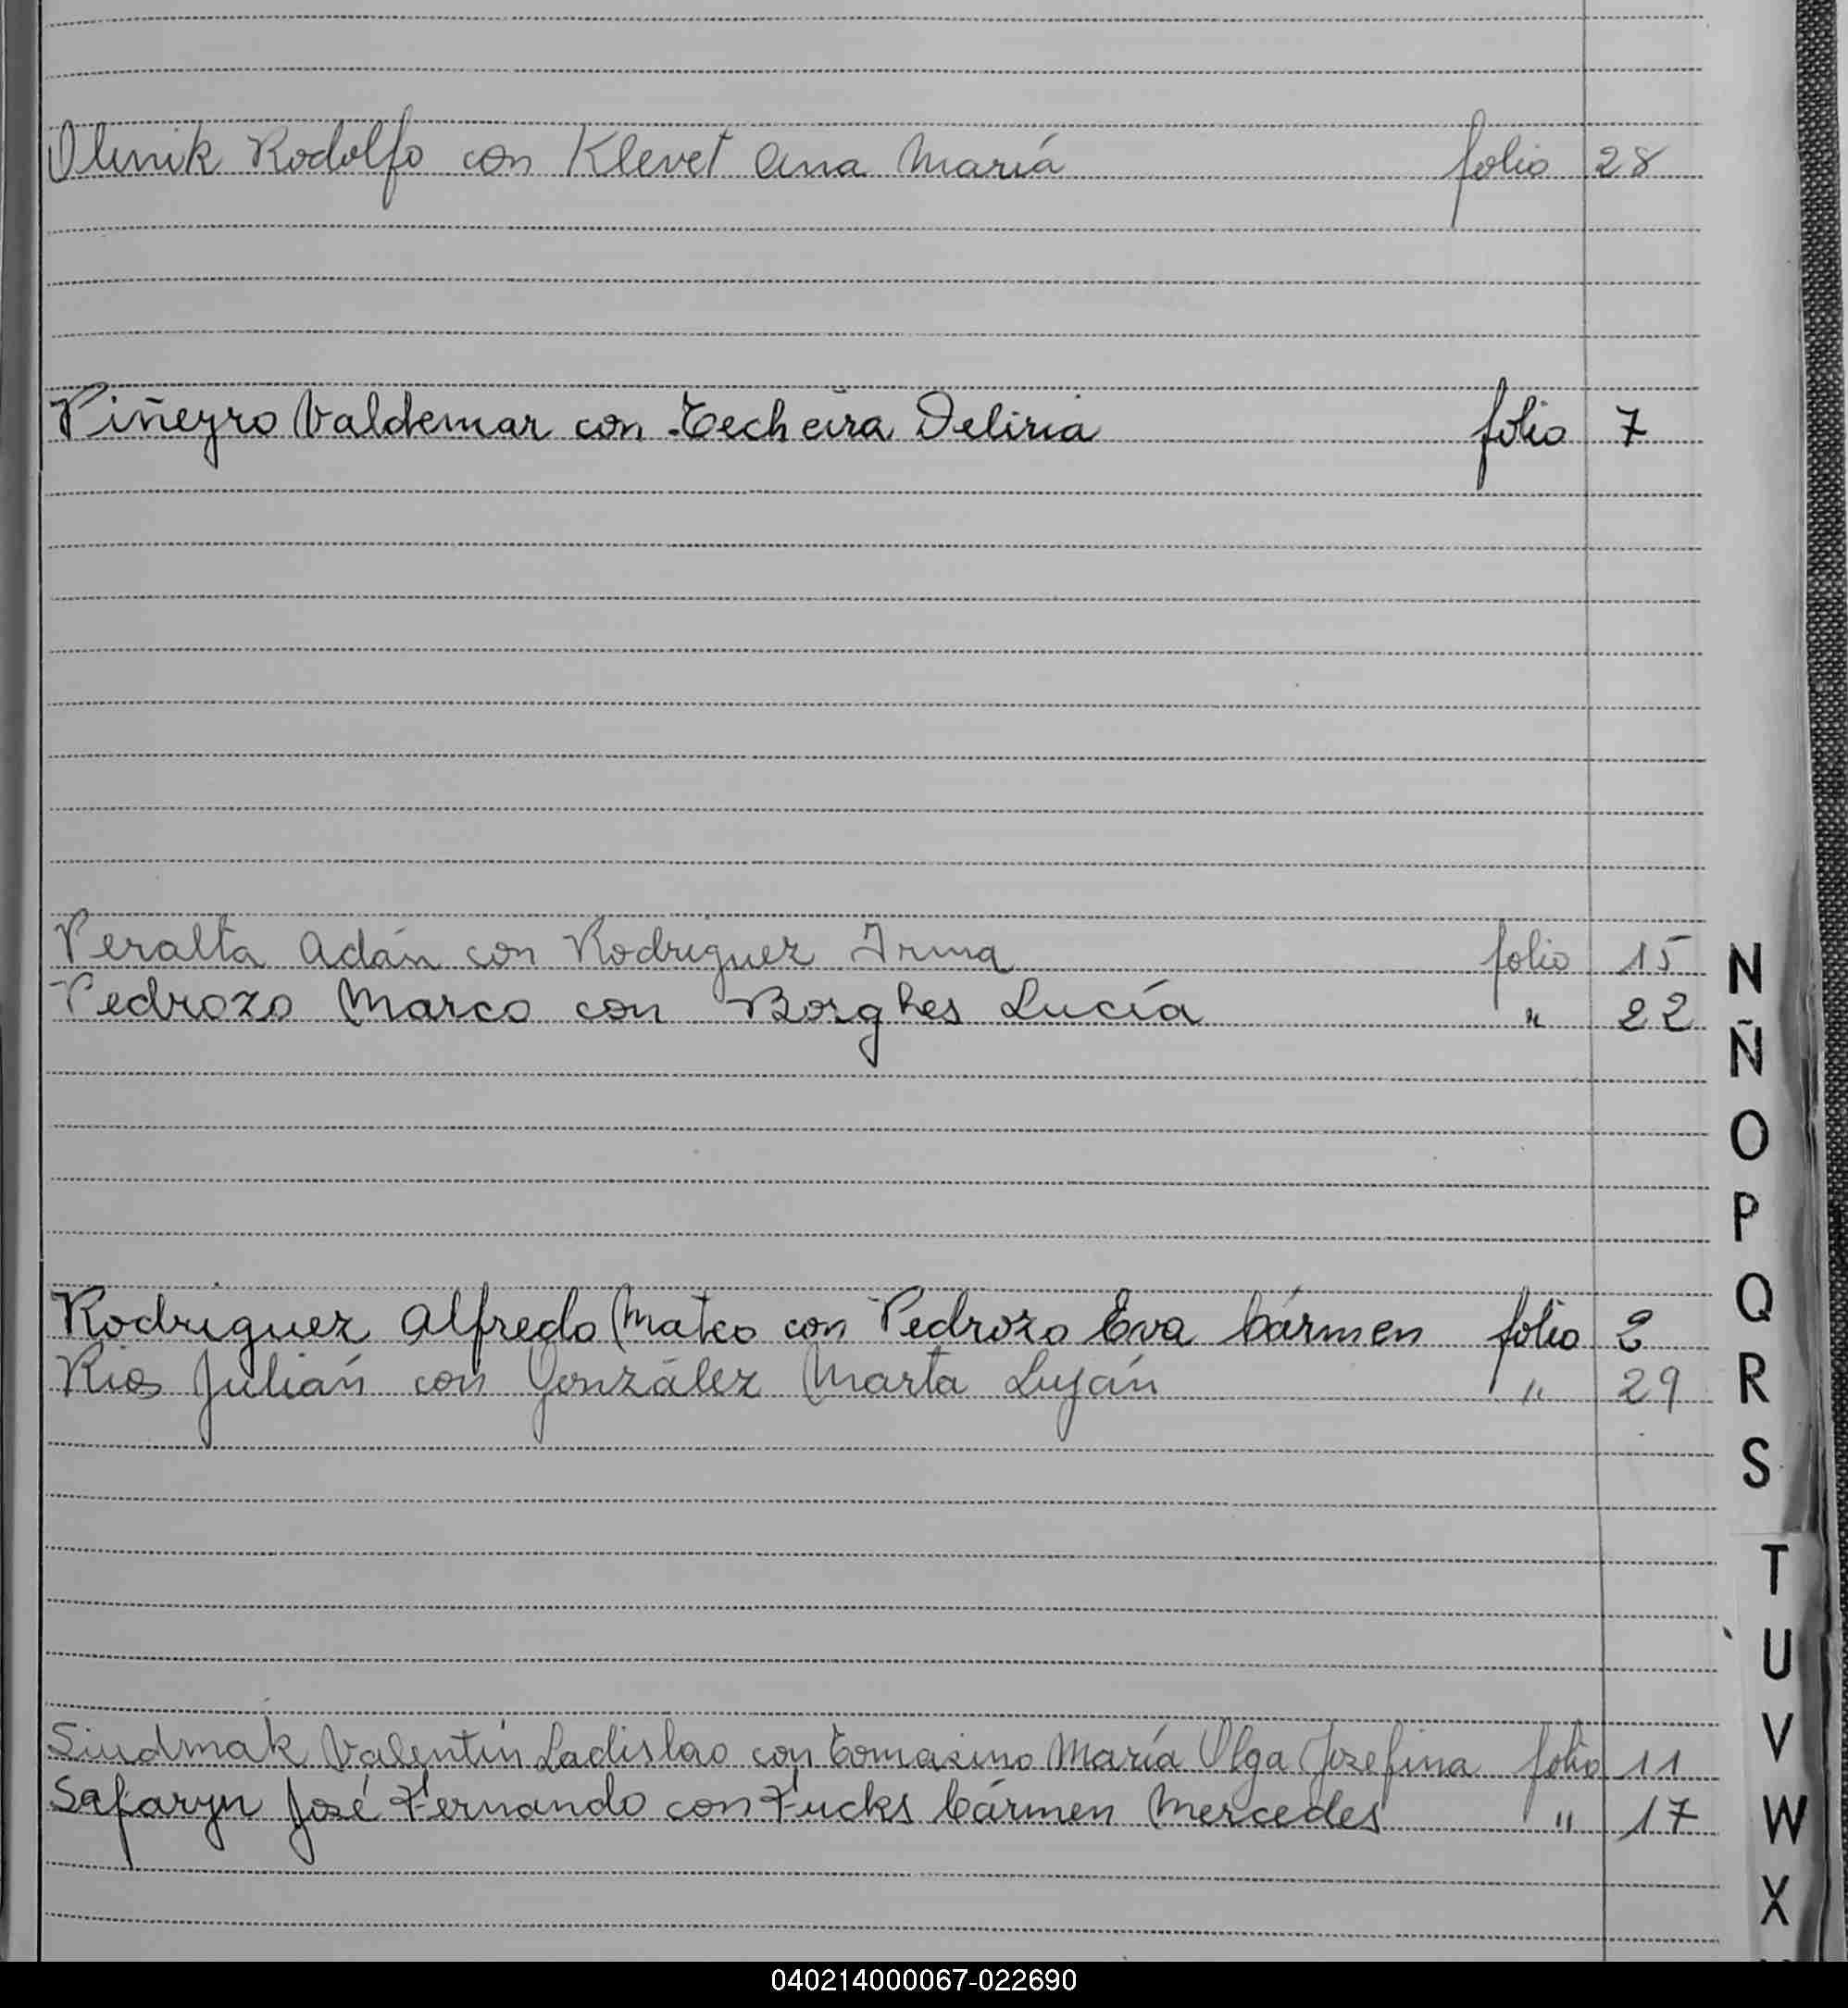 Olenik Rodolfo con Klevet Ana María folio 28
Piñeyro Valdemar con Techeira Deliria folio 7
Peralta Adán con Rodriguez Irma folio 15
Pedrozo Marco con Borghes Lucía " 22
Rodriguez Alfredo Mateo con Pedrozo Eva Cármen folio 2
Rios Julián con González Marta Luján " 29
Siudmak Valentín Ladislao con Tomasino María Olga Josefina folio 11
Safaryn José Fernando con Fucks Cármen Mercedes " 17
N
Ñ
O
P
Q
R
S
T
U
V
W
X
040214000067-022690